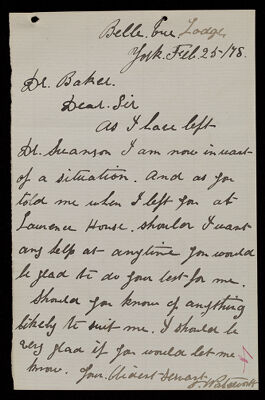 Belle Vue Lodge,
York. Feb. 25-/78.
Dr. Baker.
Dear. Sir
As I have left
Dr. Swanson I am now in want
of a situation. And as you
told me when I left you at
Lawrence House. should I want
any help at anytime you would
be glad to do your best for me.
Should you know of anything
likely to suit me. I should be
very glad if you would let me
know. Your Obident Servant